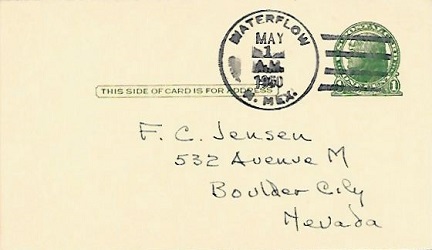 WATERFLOW
MAY
1
A.M.
1950
N. MEX.
THIS SIDE OF CARD IS FOR ADDRESS
1
F. C. Jensen
532 Avenue M
Boulder City
Nevada